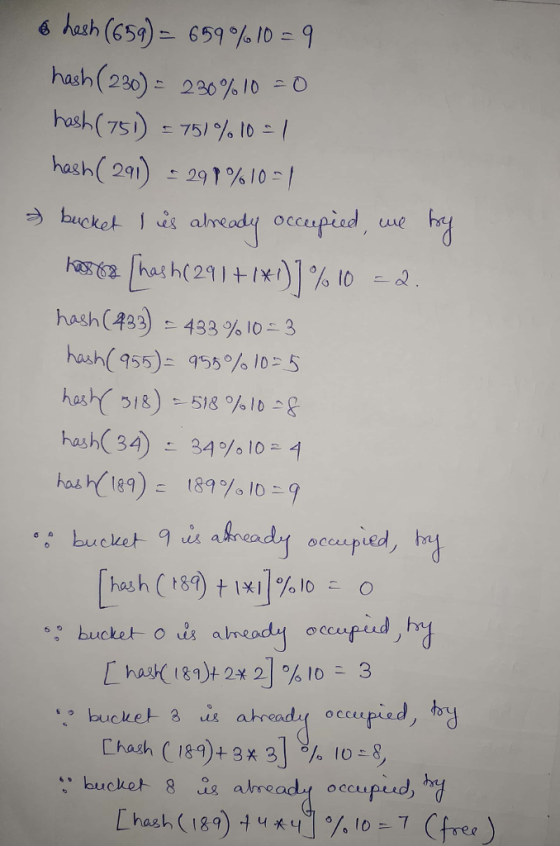 hash(659) = 659%10 = 9
hash(230) = 230%10 = 0
hash(751) = 751%10 = 1
hash(291) = 291%10 = 1
⇒ bucket 1 is already occupied, we try
[hash(291+1*1)]%10 = 2.
hash(433) = 433%10 = 3
hash(955) = 955%10 = 5
hash(518) = 518%10 = 8
hash(34) = 34%10 = 4
hash(189) = 189%10 = 9
∵ bucket 9 is already occupied, try
[hash(189) + 1*1]%10 = 0
∵ bucket 0 is already occupied, try
[hash(189)+2*2]%10 = 3
∵ bucket 3 is already occupied, try
[hash(189)+3*3]%10=8,
∵ bucket 8 is already occupied, try
[hash(189)+4*4]%10=7 (free)